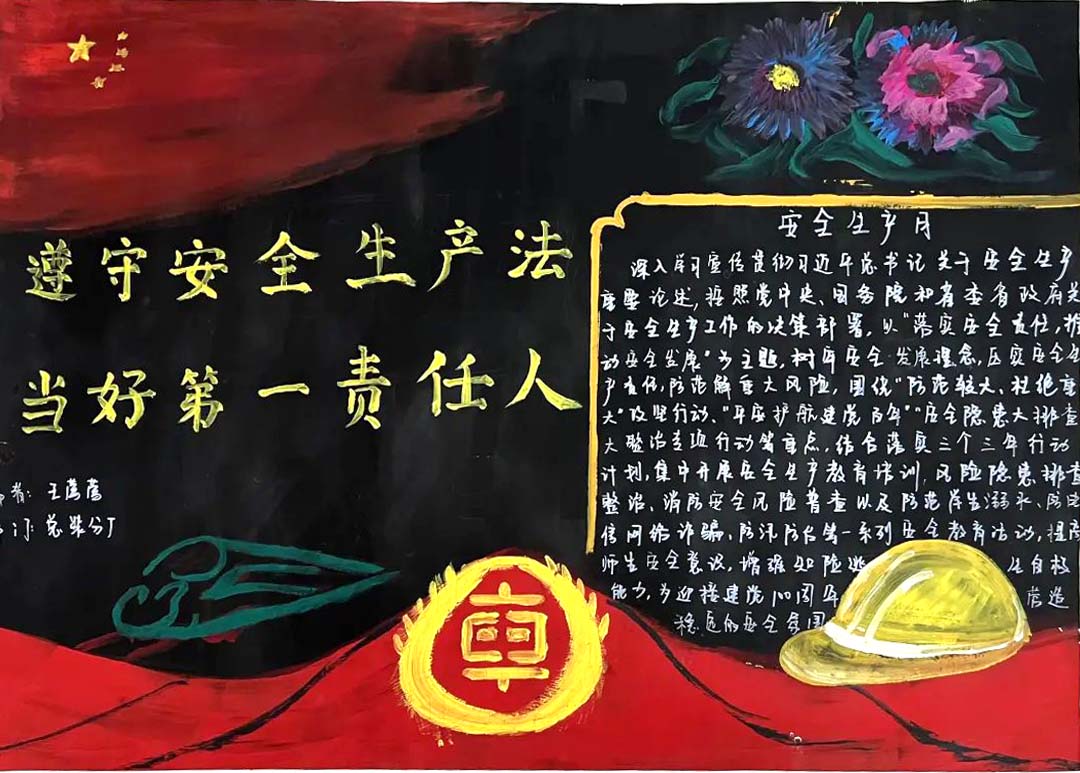 遵守安全生产法
当好第一责任人
者：王莺莺
门：总装分厂
車
安全生产月
深入学习宣传贯彻习近平总书记关于安全生产
重要论述，按照党中央、国务院和省委省政府关
于安全生产工作的决策部署，以“落实安全责任，推
动安全发展”为主题，树牢安全发展理念，压实安全生
产责任，防范解重大风险，围绕“防范较大、杜绝重
大”攻坚行动、“平安护航建党百年”安全隐患大排查
大整治专项行动等重点，结合落实三个三年行动
计划，集中开展安全生产教育培训，风险隐患排查
整治、消防安全风险普查以及防范学生溺水、防
信网络诈骗、防汛防台等一系列安全教育活动，提高
师生安全意识，增强知险 生自救
能力，为迎接建党100周年 营造
稳定的安全氛围